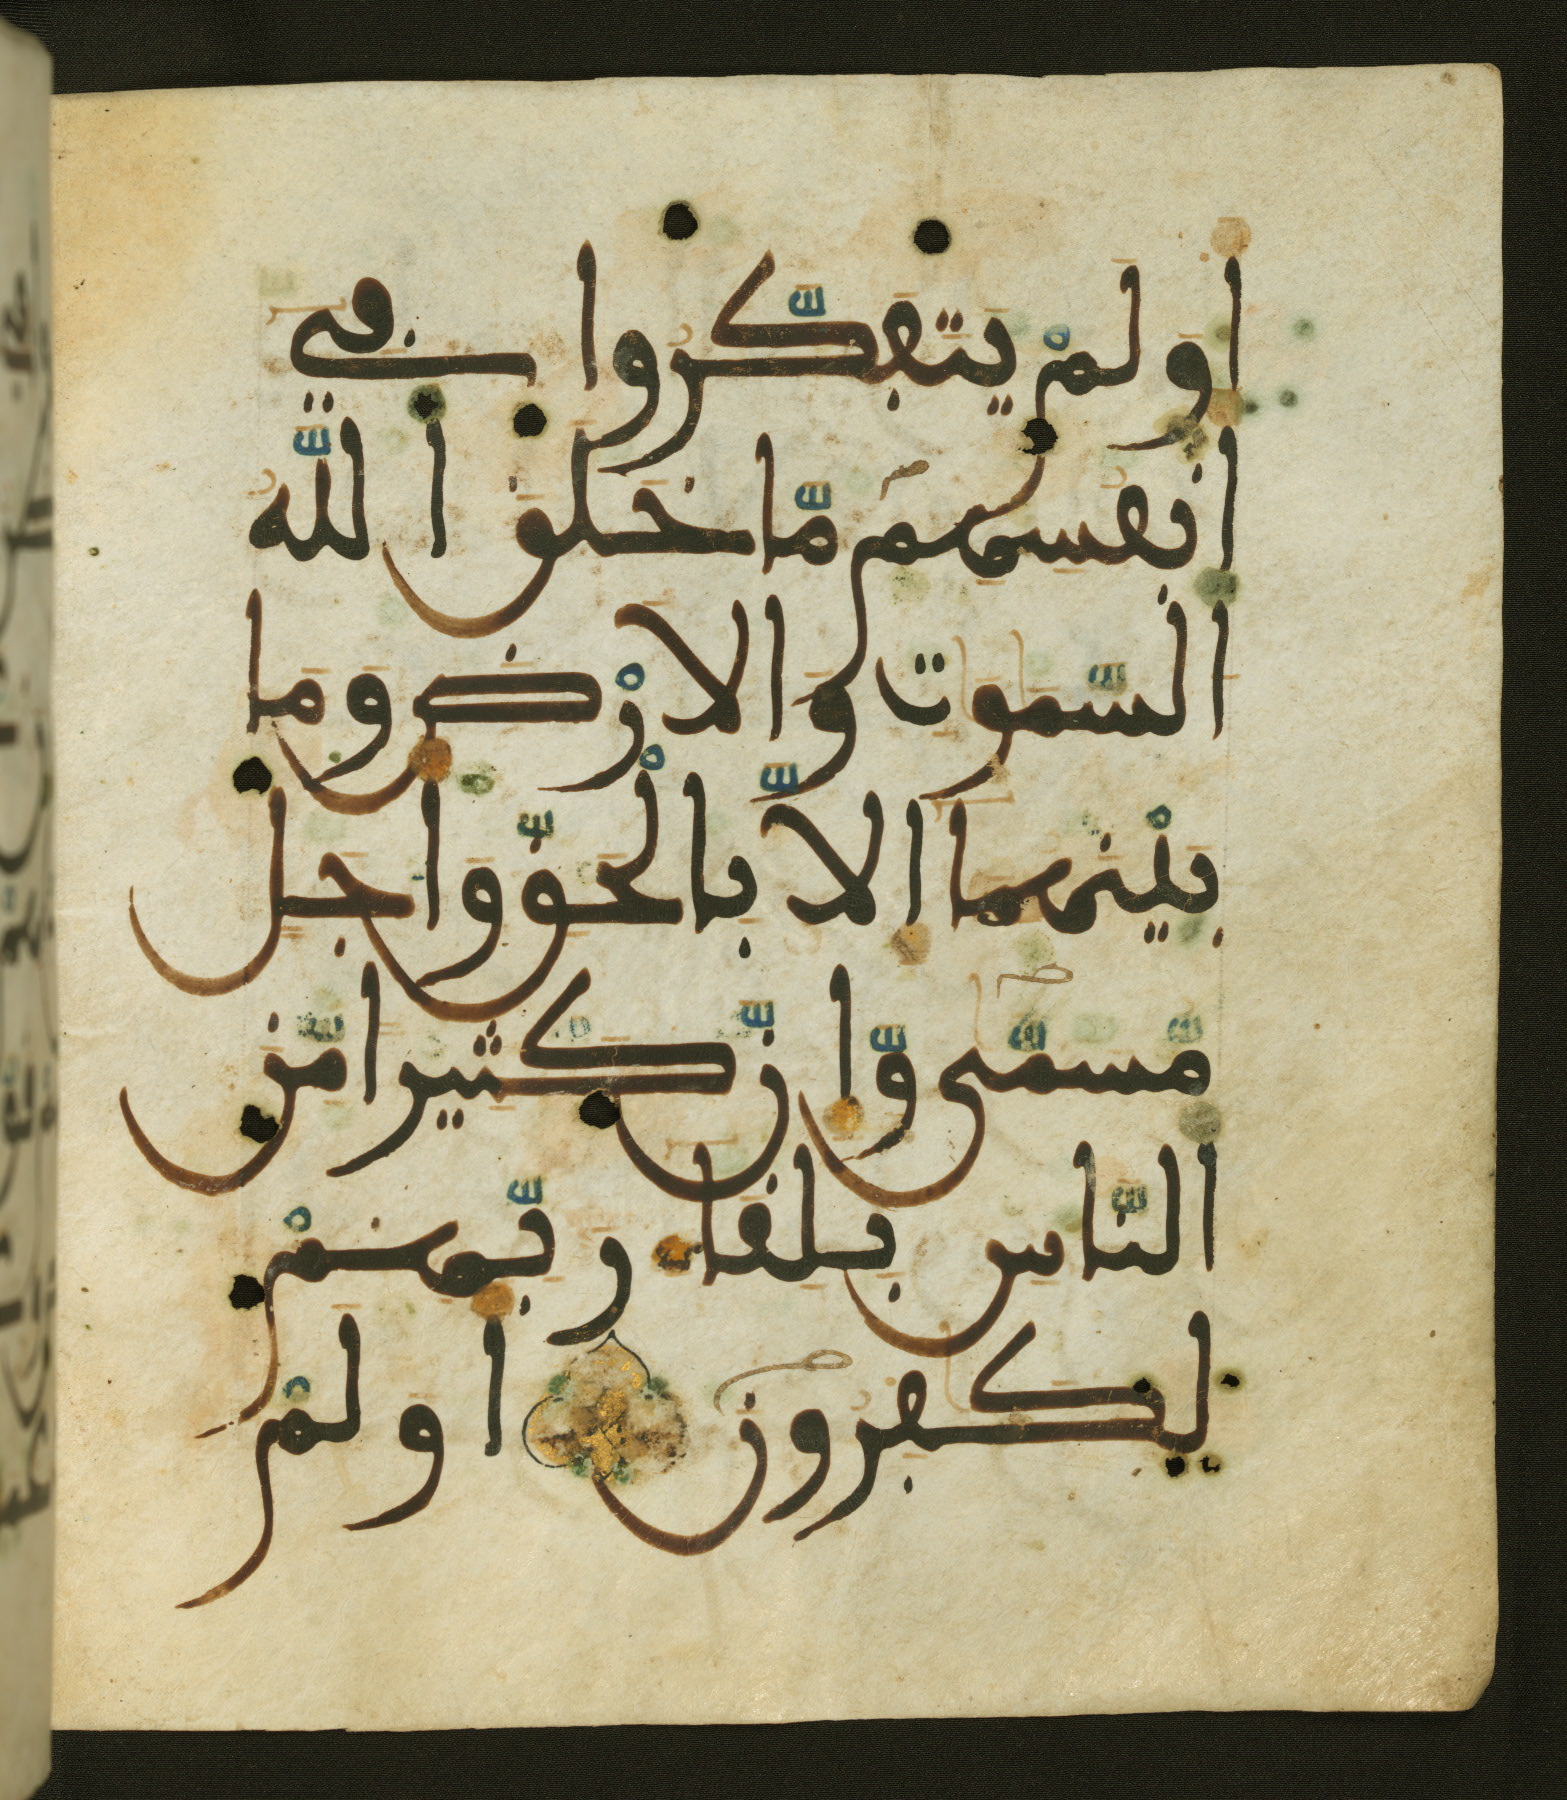 اَوَلَمْ يَتَفَكَّرُوا فِےٓ
اَنفُسِهِم مَّا خَلَقَ اَللَّهُ
اُلسَّمَٰوَٰتِ وَالَارْضَ وَمَا
بَيْنَهُمَآ إِلَّا بِالْحَقِّ وَأَجَلٖ
مُّسَمّىٗ وَّإِنَّ كَثِيراٗ مِّنَ
اَلنَّاسِ بِلِقَآءِ رَبِّهِمْ
لَكَٰفِرُونَ أَوَلَمْ